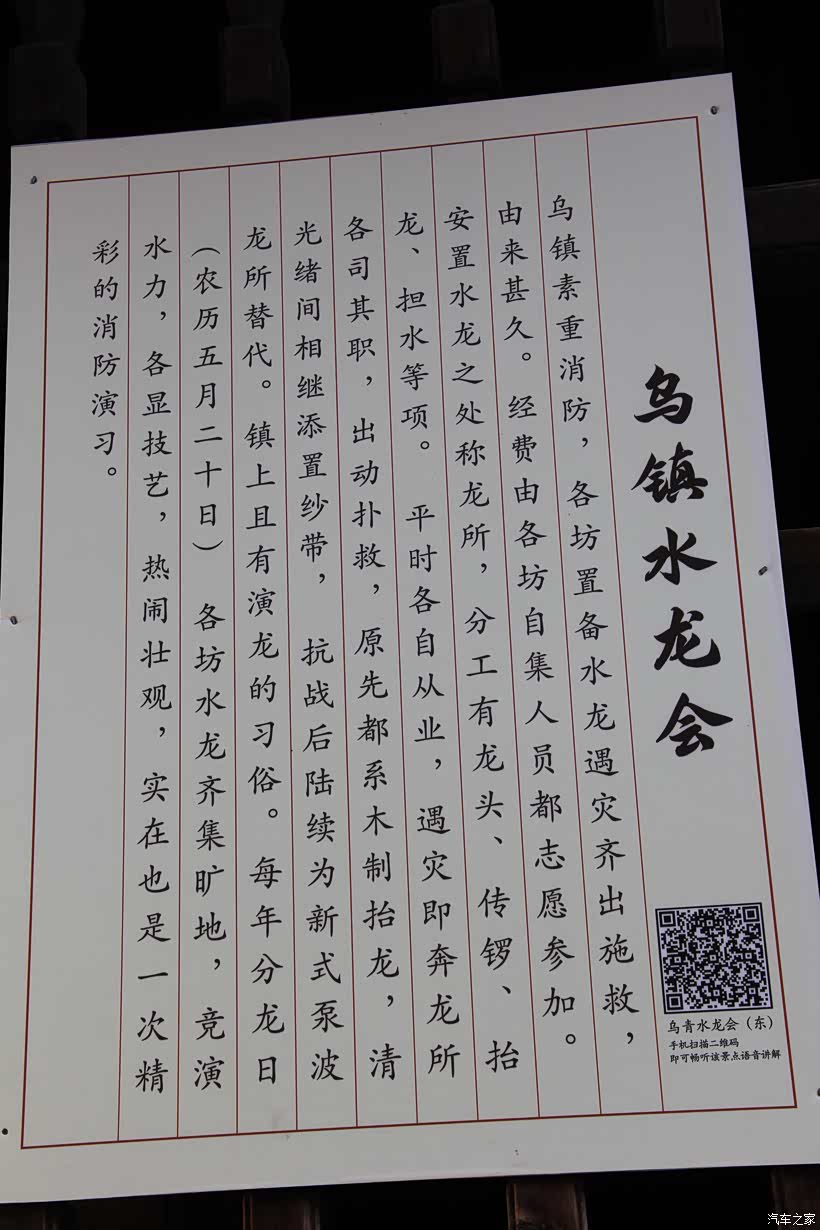 乌镇水龙会
乌镇素重消防，各坊置备水龙遇灾齐出施救，
由来甚久。经费由各坊自集人员都志愿参加。
安置水龙之处称龙所，分工有龙头、传锣、抬
龙、担水等项。平时各自从业，遇灾即奔龙所
各司其职，出动扑救，原先都系木制抬龙，清
光绪间相继添置纱带，抗战后陆续为新式泵波
龙所替代。镇上且有演龙的习俗。每年分龙日
（农历五月二十日）各坊水龙齐集旷地，竞演
水力，各显技艺，热闹壮观，实在也是一次精
彩的消防演习。
乌青水龙会（东）
手机扫描二维码
即可畅听该景点语音讲解
汽车之家